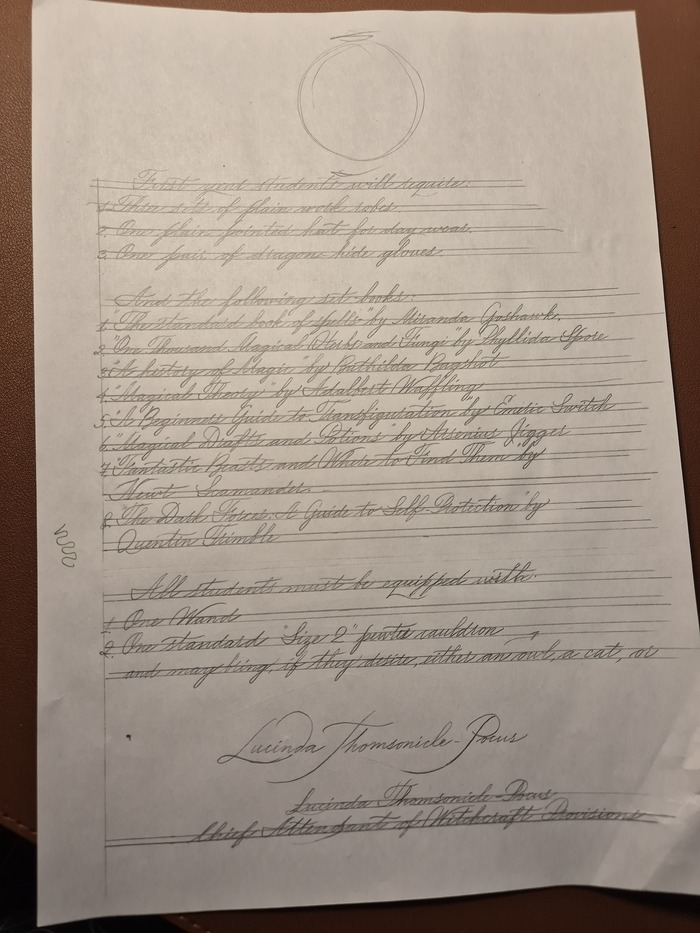 First year students will require:
1. Three sets of plain work robes.
2. One plain pointed hat for day wear.
3. One pair of dragon hide gloves.
And the following set books:
1. "The standard book of spells" by Miranda Goshawk.
2. "One Thousand Magical Herbs and Fungi" by Phyllida Spore
3. "A history of Magic" by Bathilda Bagshot
4. "Magical Theory" by Adalbert Waffling
5. "A Beginners Guide to Transfiguration" by Emeric Switch
6. "Magical Drafts and Potions" by Arsenius Jigger
7. "Fantastic Beasts and Where to Find Them" by
Newt Scamander.
8. "The Dark Forces: A Guide to Self-Protection" by
Quentin Trimble
All students must be equipped with:
1. One Wand
2. One standard "Size 2" pewter cauldron
and may bring, if they desire, either an owl, a cat, or
Lucinda Thomsonicle-Pocus
Lucinda Thomsonicle-Pocus
Chief Attendant of Witchcraft Provisions